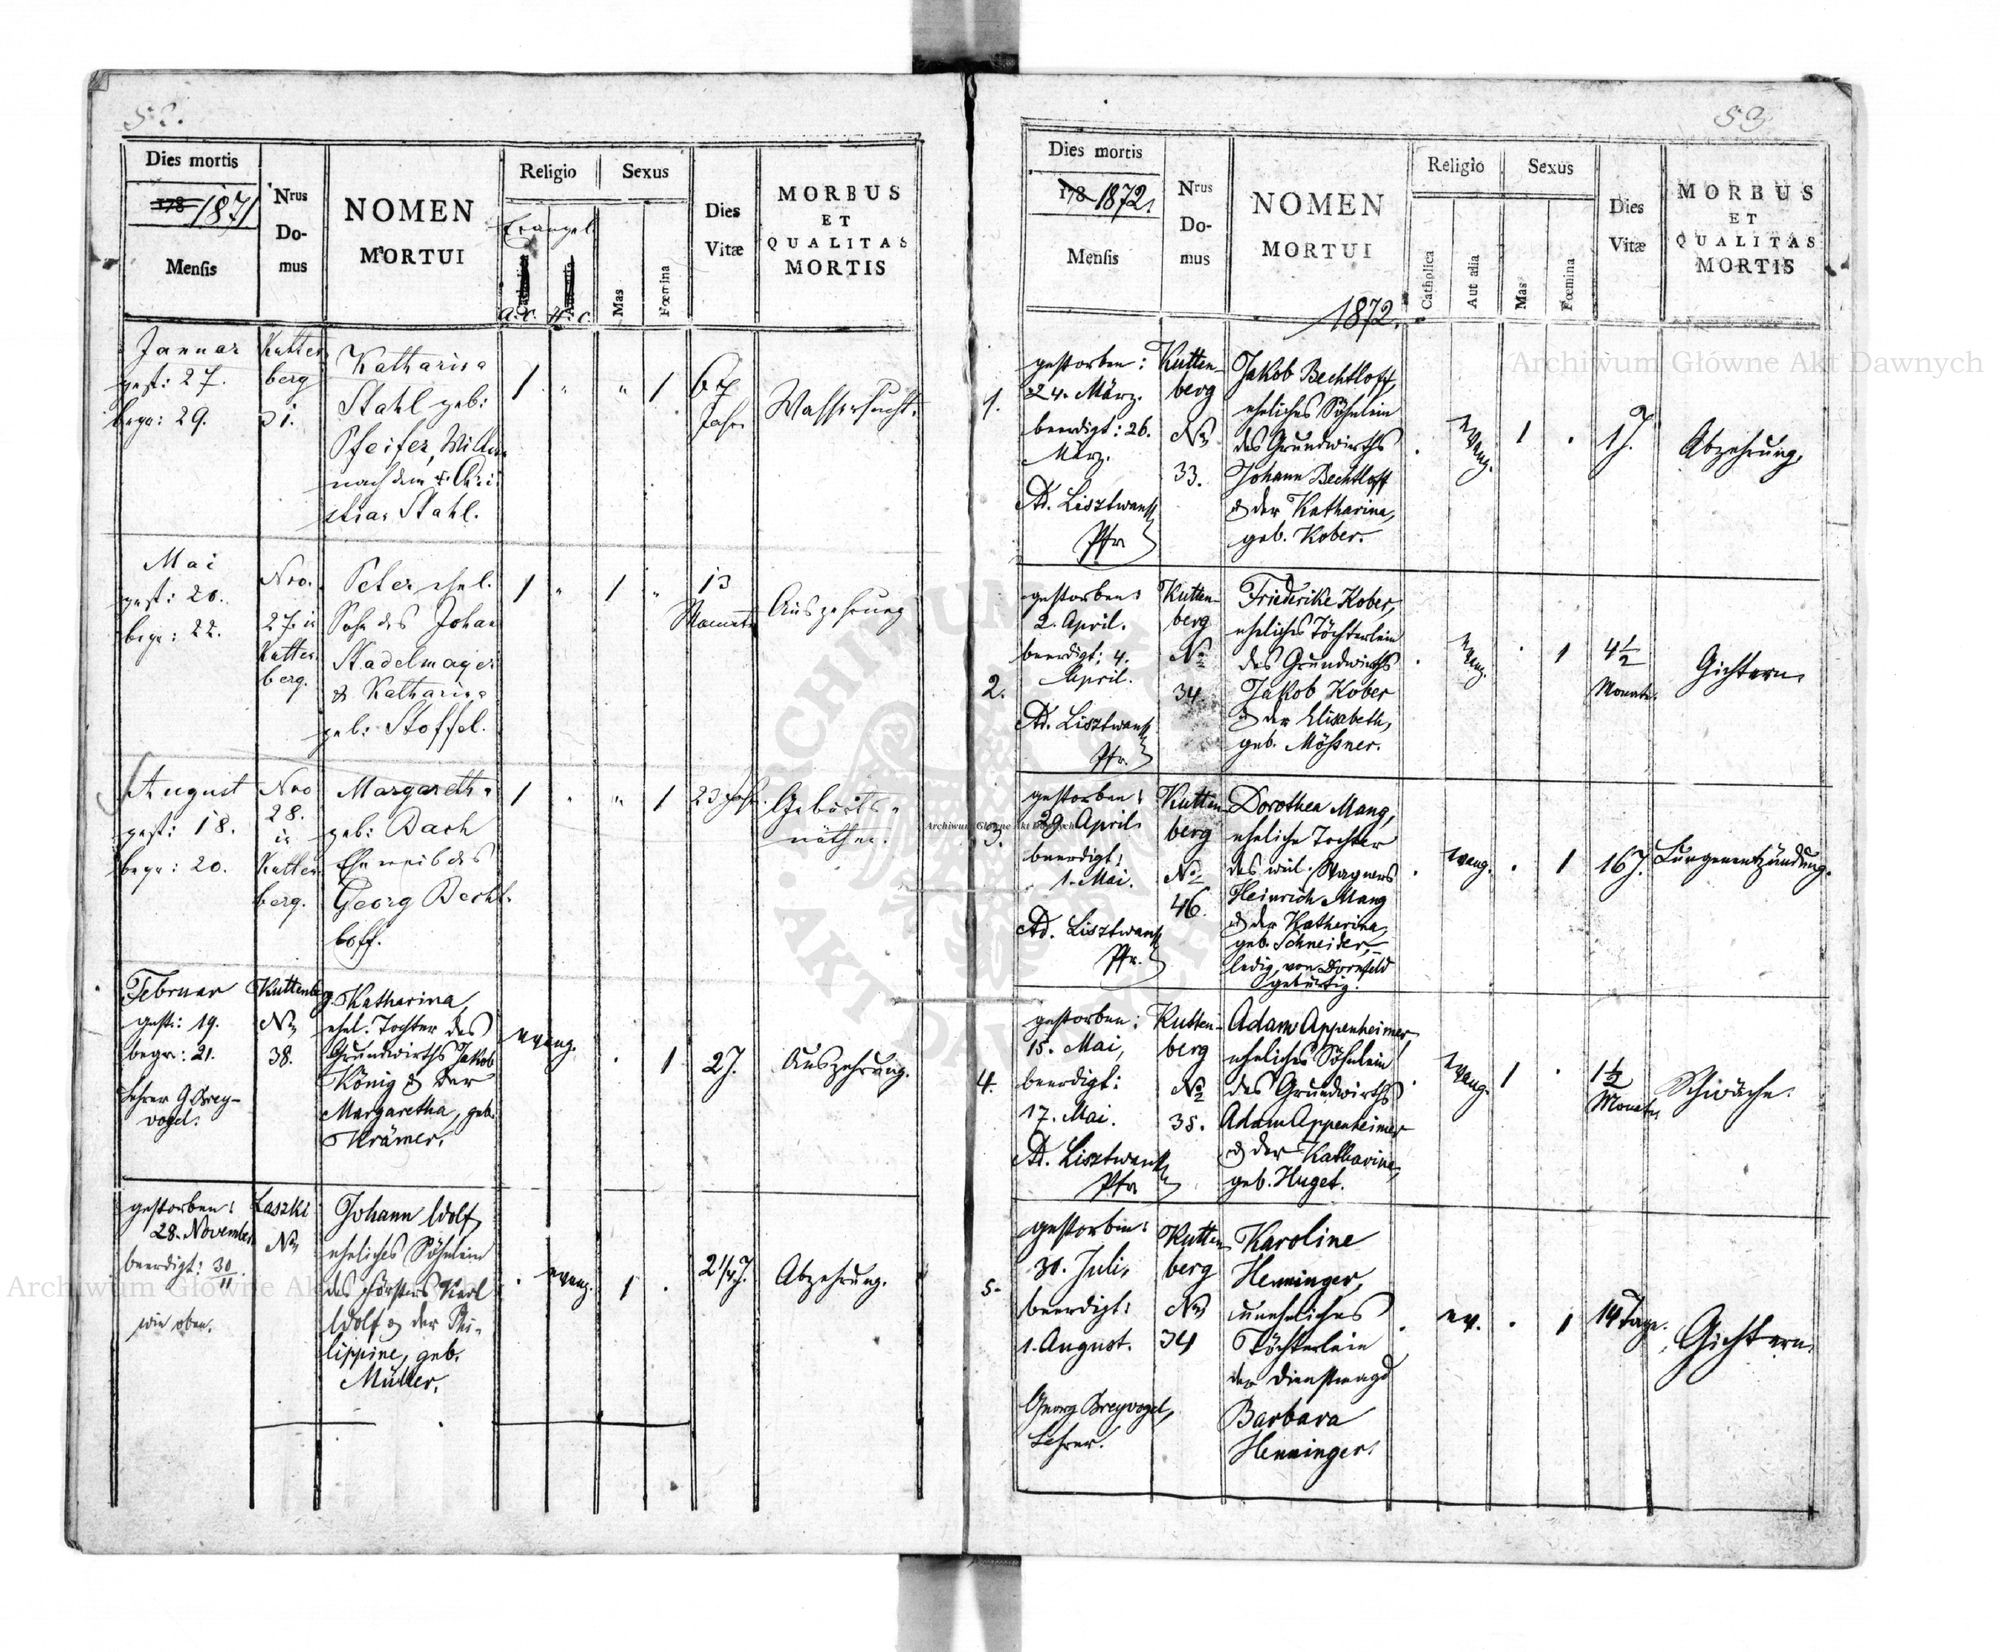 52.
Dies mortis
178 1871
Mensis
Nrus
Do-
mus
NOMEN
MORTUI
Religio
Evangel
A. C.
H. C.
Sexus
Mas
Fœmina
Dies
Vitæ
MORBUS
ET
QUALITAS
MORTIS
Januar
gest: 27.
begr: 29.
Kutten
berg
31.
Katharina
Stahl geb:
Pfeifer, Witwe
nach dem † Chri
stian Stahl.
1 " " 1
67
Jahr
Wassersucht.
Mai
gest: 20.
begr: 22.
Nro.
27. in
Kutten
berg.
Peter ehel.
Sohn des Johan
Stadelmayer
& Katharina
geb: Stoffel.
1 " 1 "
13
Monate
Auszehrung
August
gest: 18.
begr: 20.
Nro
28.
in
Kutten
berg.
Margareth
geb: Bach
Eheweib des
Georg Becht
loff.
1 " " 1
23 Jahr.
Geburts
nöthen.
Februar
gest: 19.
begr: 21.
Lehrer G Brey-
vogel.
Kuttenberg
No
38.
Katharina,
ehel. Tochter des
Grundwirths Jakob
König & der
Margaretha, geb.
Krämer.
evang.
. 1
2 J.
Auszehrung.
gestorben:
28. November
beerdigt: 30/11.
wie oben.
Laszki
No
Johann Wolf,
eheliches Söhnlein
des Försters Karl
Wolf & der Phi-
lippine, geb.
Müller.
. evang. 1 .
2 1/4 J.
Abzehrung.
53.
Dies mortis
178 1872.
Mensis
Nrus
Do-
mus
NOMEN
MORTUI
1872.
Religio
Catholica
Aut alia
Sexus
Mas
Fœmina
Dies
Vitæ
MORBUS
ET
QUALITAS
MORTIS
1.
gestorben:
24. März.
beerdigt: 26.
März.
Ad. Lisztwan
Pfr.
Kutten-
berg
No
33.
Jakob Bechtloff,
eheliches Söhnlein
des Grundwirths
Johann Bechtloff
& der Katharina,
geb. Kober.
. evang. 1 .
1 J.
Abzehrung.
2.
gestorben:
2. April.
beerdigt: 4.
April.
Ad. Lisztwan
Pfr.
Kutten-
berg
No
34.
Friederike Kober,
eheliches Töchterlein
des Grundwirths
Jakob Kober
& der Elisabeth,
geb. Mößner.
. evang. . 1
4 1/2
Monate.
Gichtern.
3.
gestorben:
29. April
beerdigt:
1. Mai.
Ad. Lisztwan
Pfr.
Kutten-
berg
No
46.
Dorothea Mang,
eheliche Tochter
des weil. Wagners
Heinrich Mang
& der Katharina,
geb. Schneider,
ledig, von Dornfeld
gebürtig.
. evang. . 1
16 J.
Lungenentzündung.
4.
gestorben:
15. Mai,
beerdigt:
17. Mai.
Ad. Lisztwan
Pfr.
Kutten-
berg
No
35.
Adam Appenheimer,
eheliches Söhnlein
des Grundwirths
Adam Appenheimer
& der Katharina,
geb. Huget.
. evang. 1 .
1 1/2
Monate.
Schwäche.
5.
gestorben:
30. Juli,
beerdigt:
1. August.
Georg Breyvogel,
Lehrer.
Kutten-
berg
No
34
Karoline
Henninger,
uneheliches
Töchterlein
der Dienstmagd
Barbara
Henninger.
. ev. . 1
14 Tage.
Gichtern.
Archiwum Główne Akt Dawnych
Archiwum Główne Akt Dawnych
Archiwum Główne Akt Dawnych
ARCHIWUM GŁÓWNE AKT DAWNYCH